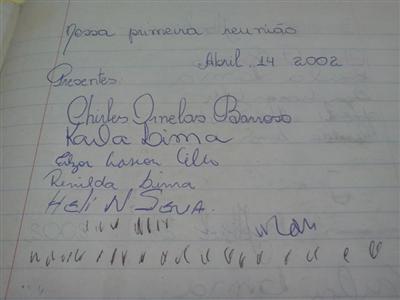 Nossa primeira reunião
Abril 14 2002
Presentes
Chirles Ornelas Barroso
Karla Lima
Renilda Lima
HELI N SENA.